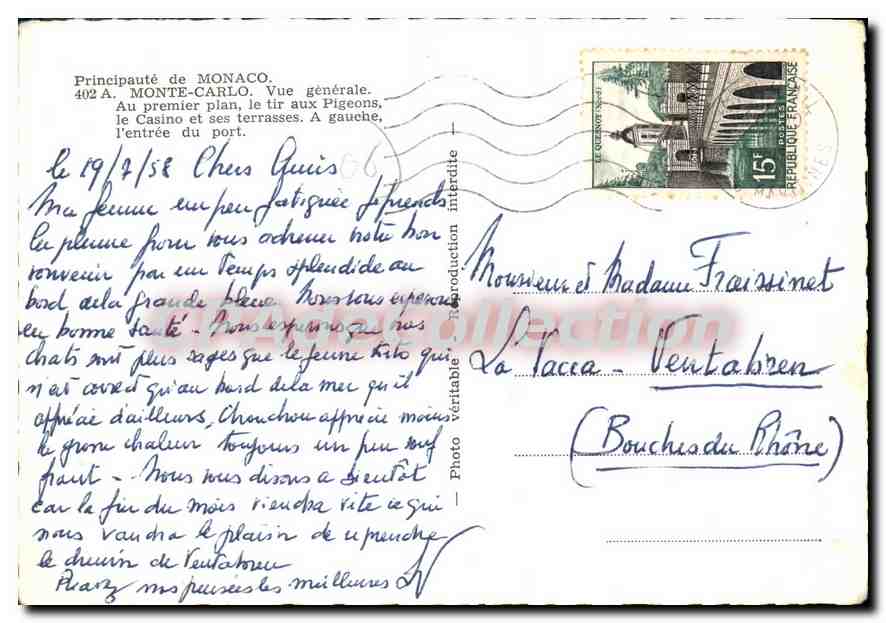 Principauté de MONACO.
402 A. MONTE-CARLO. Vue générale.
Au premier plan, le tir aux Pigeons,
le Casino et ses terrasses. A gauche,
l'entrée du port.
le 19/7/58 Chers Amis
Ma femme un peu fatiguée je prends
la plume pour vous adresser notre bon
souvenir par un temps splendide au
bord de la grande bleue. Nous vous espérons
en bonne santé - Nous espérons que nos
chats sont plus sages que le jeune Kito qui
n'est correct qu'au bord de la mer qu'il
apprécie d'ailleurs, Chouchou apprécie moins
la grosse chaleur toujours un peu
Nous vous disons à bientôt
car la fin du mois viendra vite ce qui
nous vaudra le plaisir de reprendre
le chemin de Ventabren
nos pensées les meilleures
— Photo véritable - Reproduction interdite —
LE QUESNOY (Nord)
15F
POSTES
REPUBLIQUE FRANÇAISE
Monsieur et Madame Fraissinet
La Tacca - Ventabren
(Bouches du Rhône)
Collection